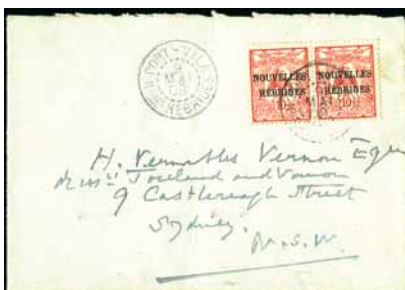 PORT-VILA
MAI
NOUVELLES
HÉBRIDES
NOUVELLES
HÉBRIDES
H. Venables Vernon Esqr
and Vernon
9 Castlereagh Street
Sydney.
N.S.W.